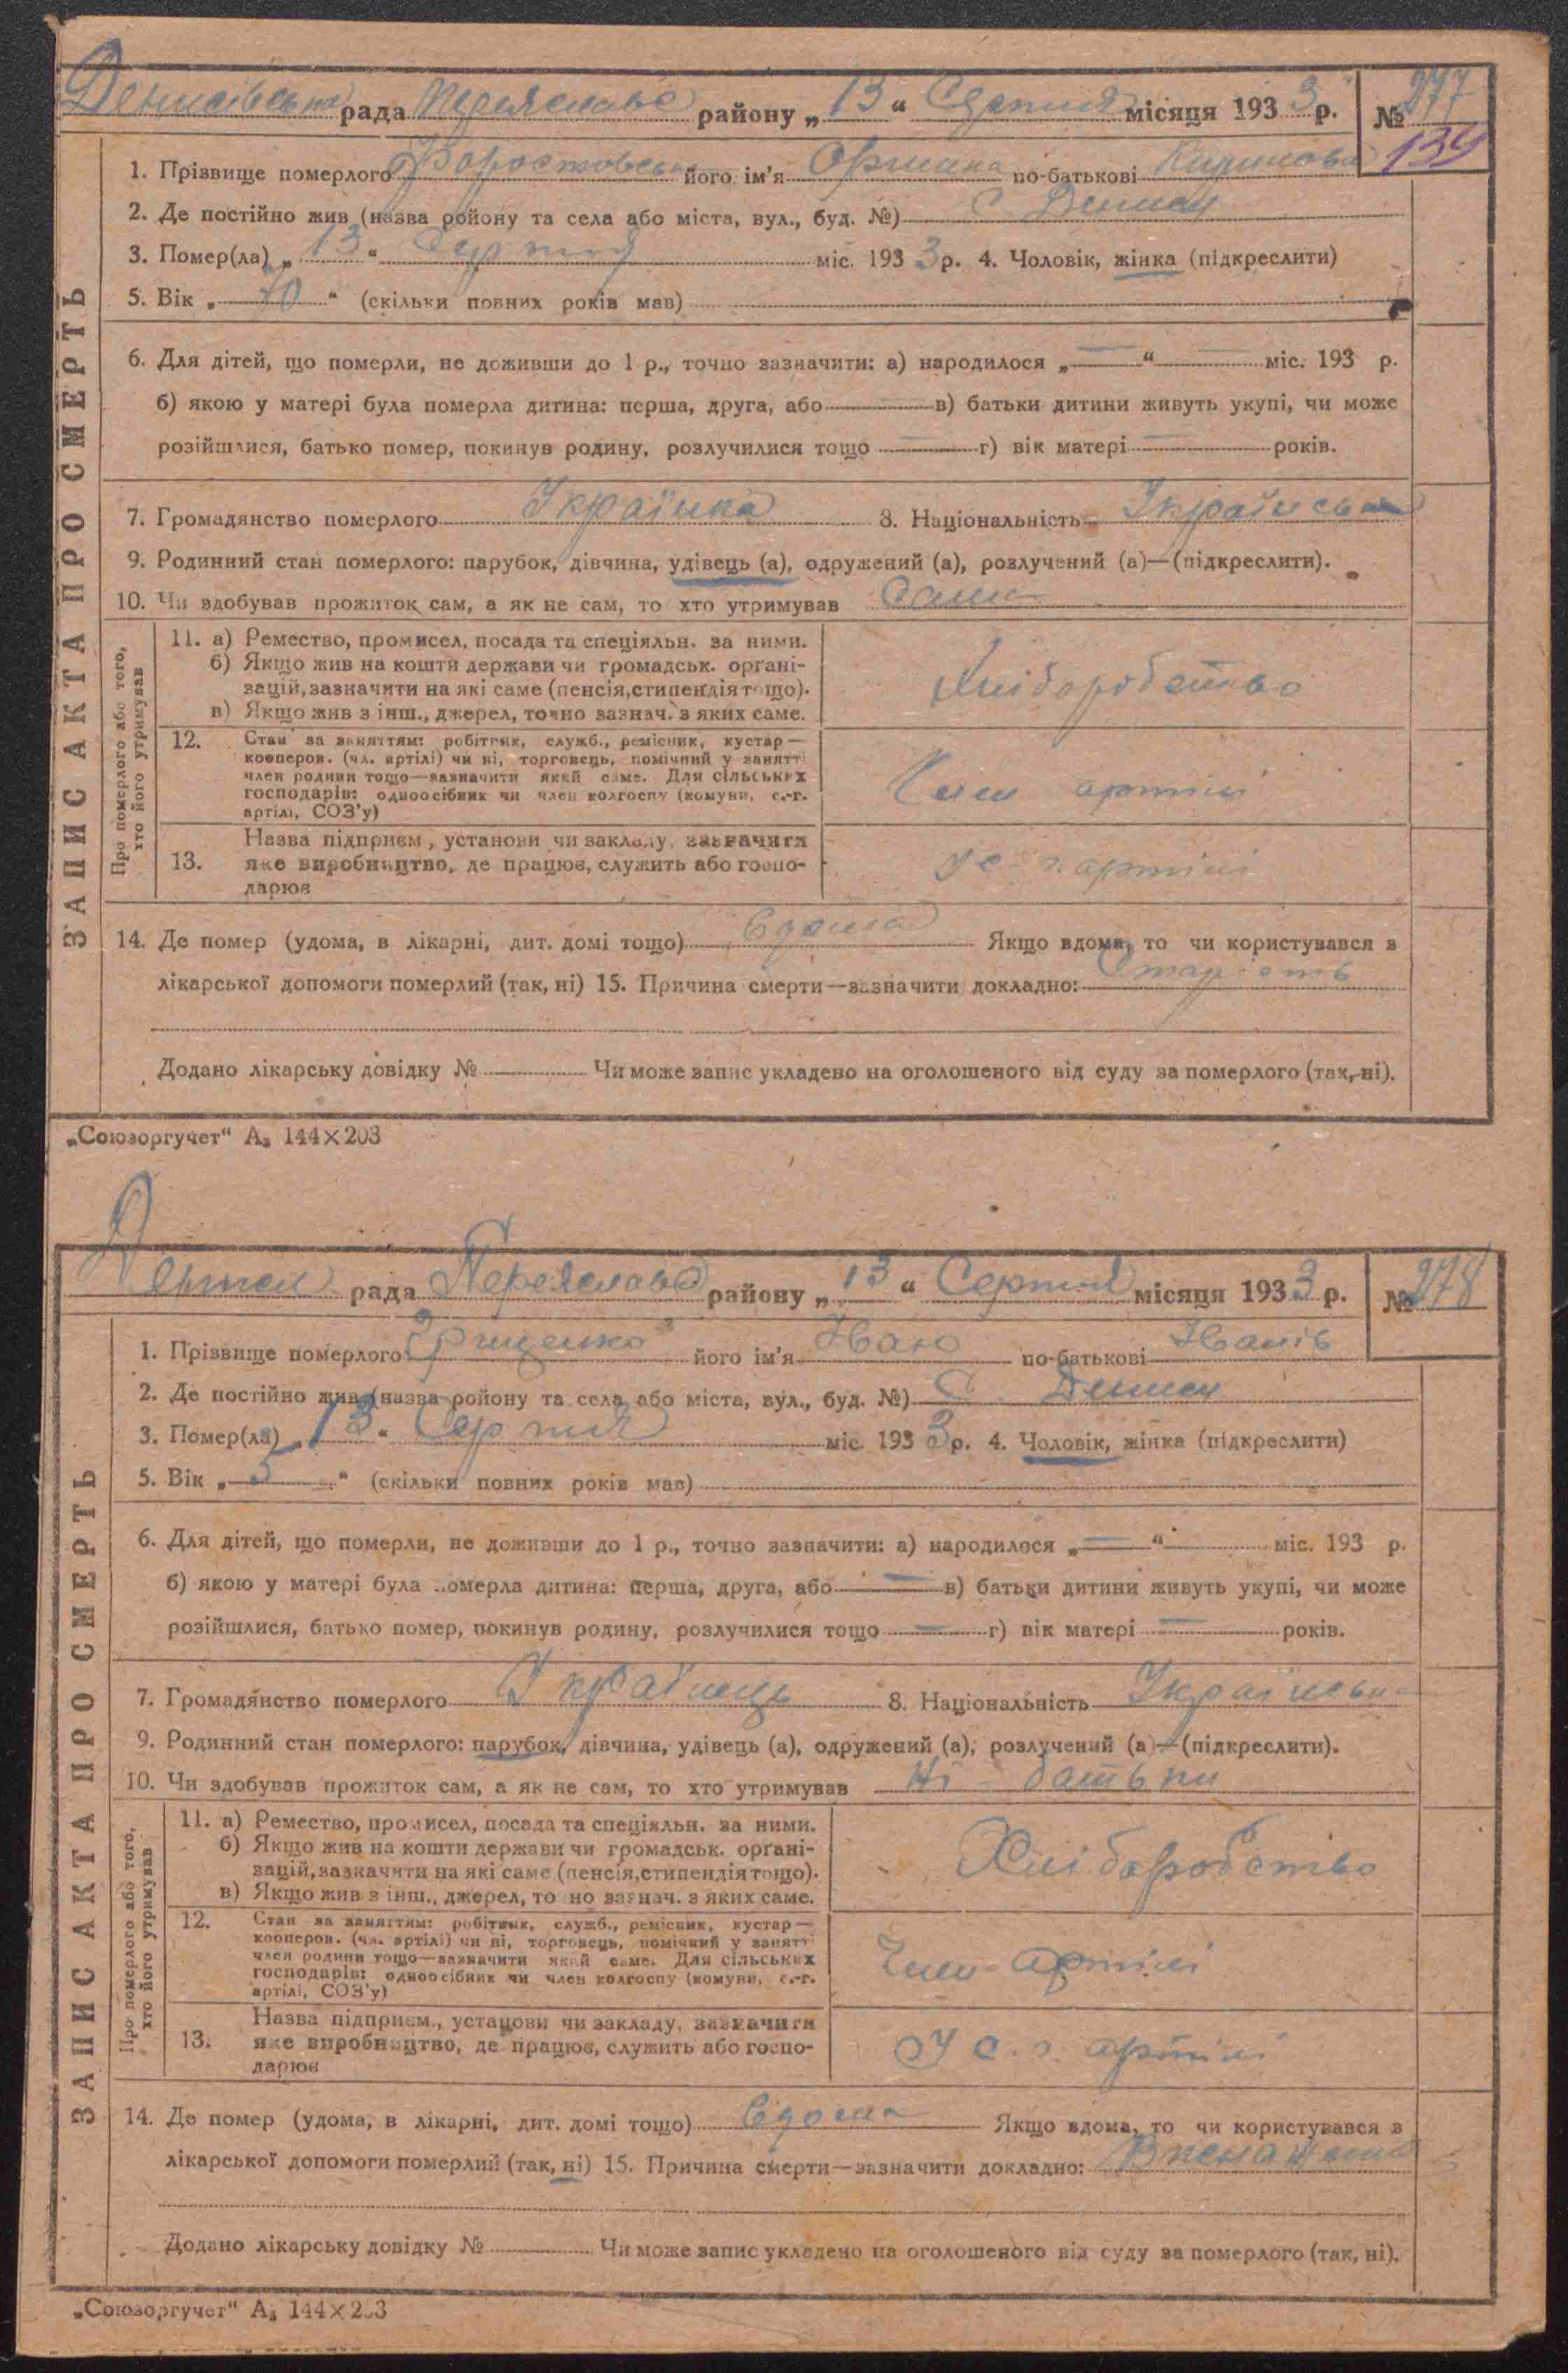 Денисівська рада Переяславс району „13“ Серпня місяця 1933 р. № 277
139
1. Прізвище померлого його ім'я по-батькові
2. Де постійно жив (назва ройону та села або міста, вул., буд. №) С. Дениси
3. Помер(ла) „13“ Серпня міс. 1933 р. 4. Чоловік, жінка (підкреслити)
5. Вік „70“ (скільки повних років мав)
6. Для дітей, що померли, не доживши до 1 р., точно зазначити: а) народилося „—“ — міс. 193 р.
б) якою у матері була померла дитина: перша, друга, або — в) батьки дитини живуть укупі, чи може
розійшлися, батько помер, покинув родину, розлучилися тощо — г) вік матері — років.
7. Громадянство померлого Українка 8. Національність Українська
9. Родинний стан померлого: парубок, дівчина, удівець (а), одружений (а), розлучений (а)—(підкреслити).
10. Чи здобував прожиток сам, а як не сам, то хто утримував Сама
11. а) Ремество, промисел, посада та спеціяльн. за ними.
б) Якщо жив на кошти держави чи громадськ. орґані-
зацій, зазначити на які саме (пенсія, стипендія тощо).
в) Якщо жив з інш., джерел, точно зазнач. з яких саме.
Хліборобство
12. Стан за заняттям: робітник, служб., ремісник, кустар—
кооперов. (чл. артілі) чи ні, торговець, помічний у занятті
член родини тощо—зазначити який саме. Для сільських
господарів: одноосібник чи член колгоспу (комуни, с.-г.
артілі, СОЗ'у)
Член артілі
13. Назва підприєм., установи чи закладу, зазначити
яке виробництво, де працює, служить або госпо-
дарює
У с. г. артілі
14. Де помер (удома, в лікарні, дит. домі тощо) Вдома Якщо вдома, то чи користувався з
лікарської допомоги померлий (так, ні) 15. Причина смерти—зазначити докладно: Старість
Додано лікарську довідку № Чи може запис укладено на оголошеного від суду за померлого (так, ні).
ЗАПИС АКТА ПРО СМЕРТЬ
Про померлого або того,
хто його утримував
„Союзоргучет“ А₅ 144×203
рада Переяславс району „13“ Серпня місяця 1933 р. № 278
1. Прізвище померлого Грищенко його ім'я Іван по-батькові Іванів
2. Де постійно жив (назва ройону та села або міста, вул., буд. №) С. Дениси
3. Помер(ла) „13“ Серпня міс. 1933 р. 4. Чоловік, жінка (підкреслити)
5. Вік „5“ (скільки повних років мав)
6. Для дітей, що померли, не доживши до 1 р., точно зазначити: а) народилося „—“ міс. 193 р.
б) якою у матері була померла дитина: перша, друга, або — в) батьки дитини живуть укупі, чи може
розійшлися, батько помер, покинув родину, розлучилися тощо — г) вік матері — років.
7. Громадянство померлого Українець 8. Національність
9. Родинний стан померлого: парубок, дівчина, удівець (а), одружений (а), розлучений (а)—(підкреслити).
10. Чи здобував прожиток сам, а як не сам, то хто утримував Ні - батьки
11. а) Ремество, промисел, посада та спеціяльн. за ними.
б) Якщо жив на кошти держави чи громадськ. орґані-
зацій, зазначити на які саме (пенсія, стипендія тощо).
в) Якщо жив з інш., джерел, точно зазнач. з яких саме.
Хліборобство
12. Стан за заняттям: робітник, служб., ремісник, кустар—
кооперов. (чл. артілі) чи ні, торговець, помічний у занятті
член родини тощо—зазначити який саме. Для сільських
господарів: одноосібник чи член колгоспу (комуни, с.-г.
артілі, СОЗ'у)
Член артілі
13. Назва підприєм., установи чи закладу, зазначити
яке виробництво, де працює, служить або госпо-
дарює
У с. г. артілі
14. Де помер (удома, в лікарні, дит. домі тощо) Вдома Якщо вдома, то чи користувався з
лікарської допомоги померлий (так, ні) 15. Причина смерти—зазначити докладно:
Додано лікарську довідку № Чи може запис укладено на оголошеного від суду за померлого (так, ні).
ЗАПИС АКТА ПРО СМЕРТЬ
Про померлого або того,
хто його утримував
„Союзоргучет“ А₅ 144×203